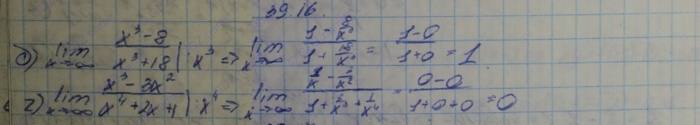 39.16.
в) lim x→∞ (x³-8)/(x³+18) |: x³ => lim x→∞ (1 - 8/x³)/(1 + 18/x³) = (1-0)/(1+0) = 1
г) lim x→∞ (x³-3x²)/(x⁴+2x+1) |: x⁴ => lim x→∞ (1/x - 3/x²)/(1 + 2/x³ + 1/x⁴) = (0-0)/(1+0+0) = 0